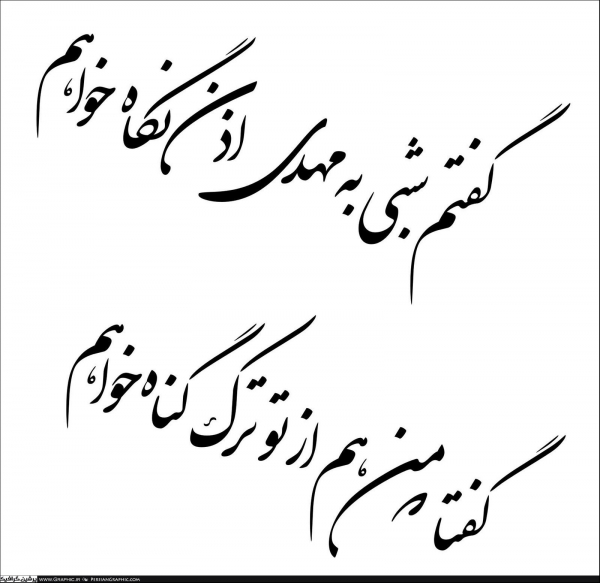 گفتم شبی به مهدی اذن نگاه خواهم
گفتا من هم از تو ترک گناه خواهم
پرشین گرافیک www.Graphic.ir PersianGraphic.com